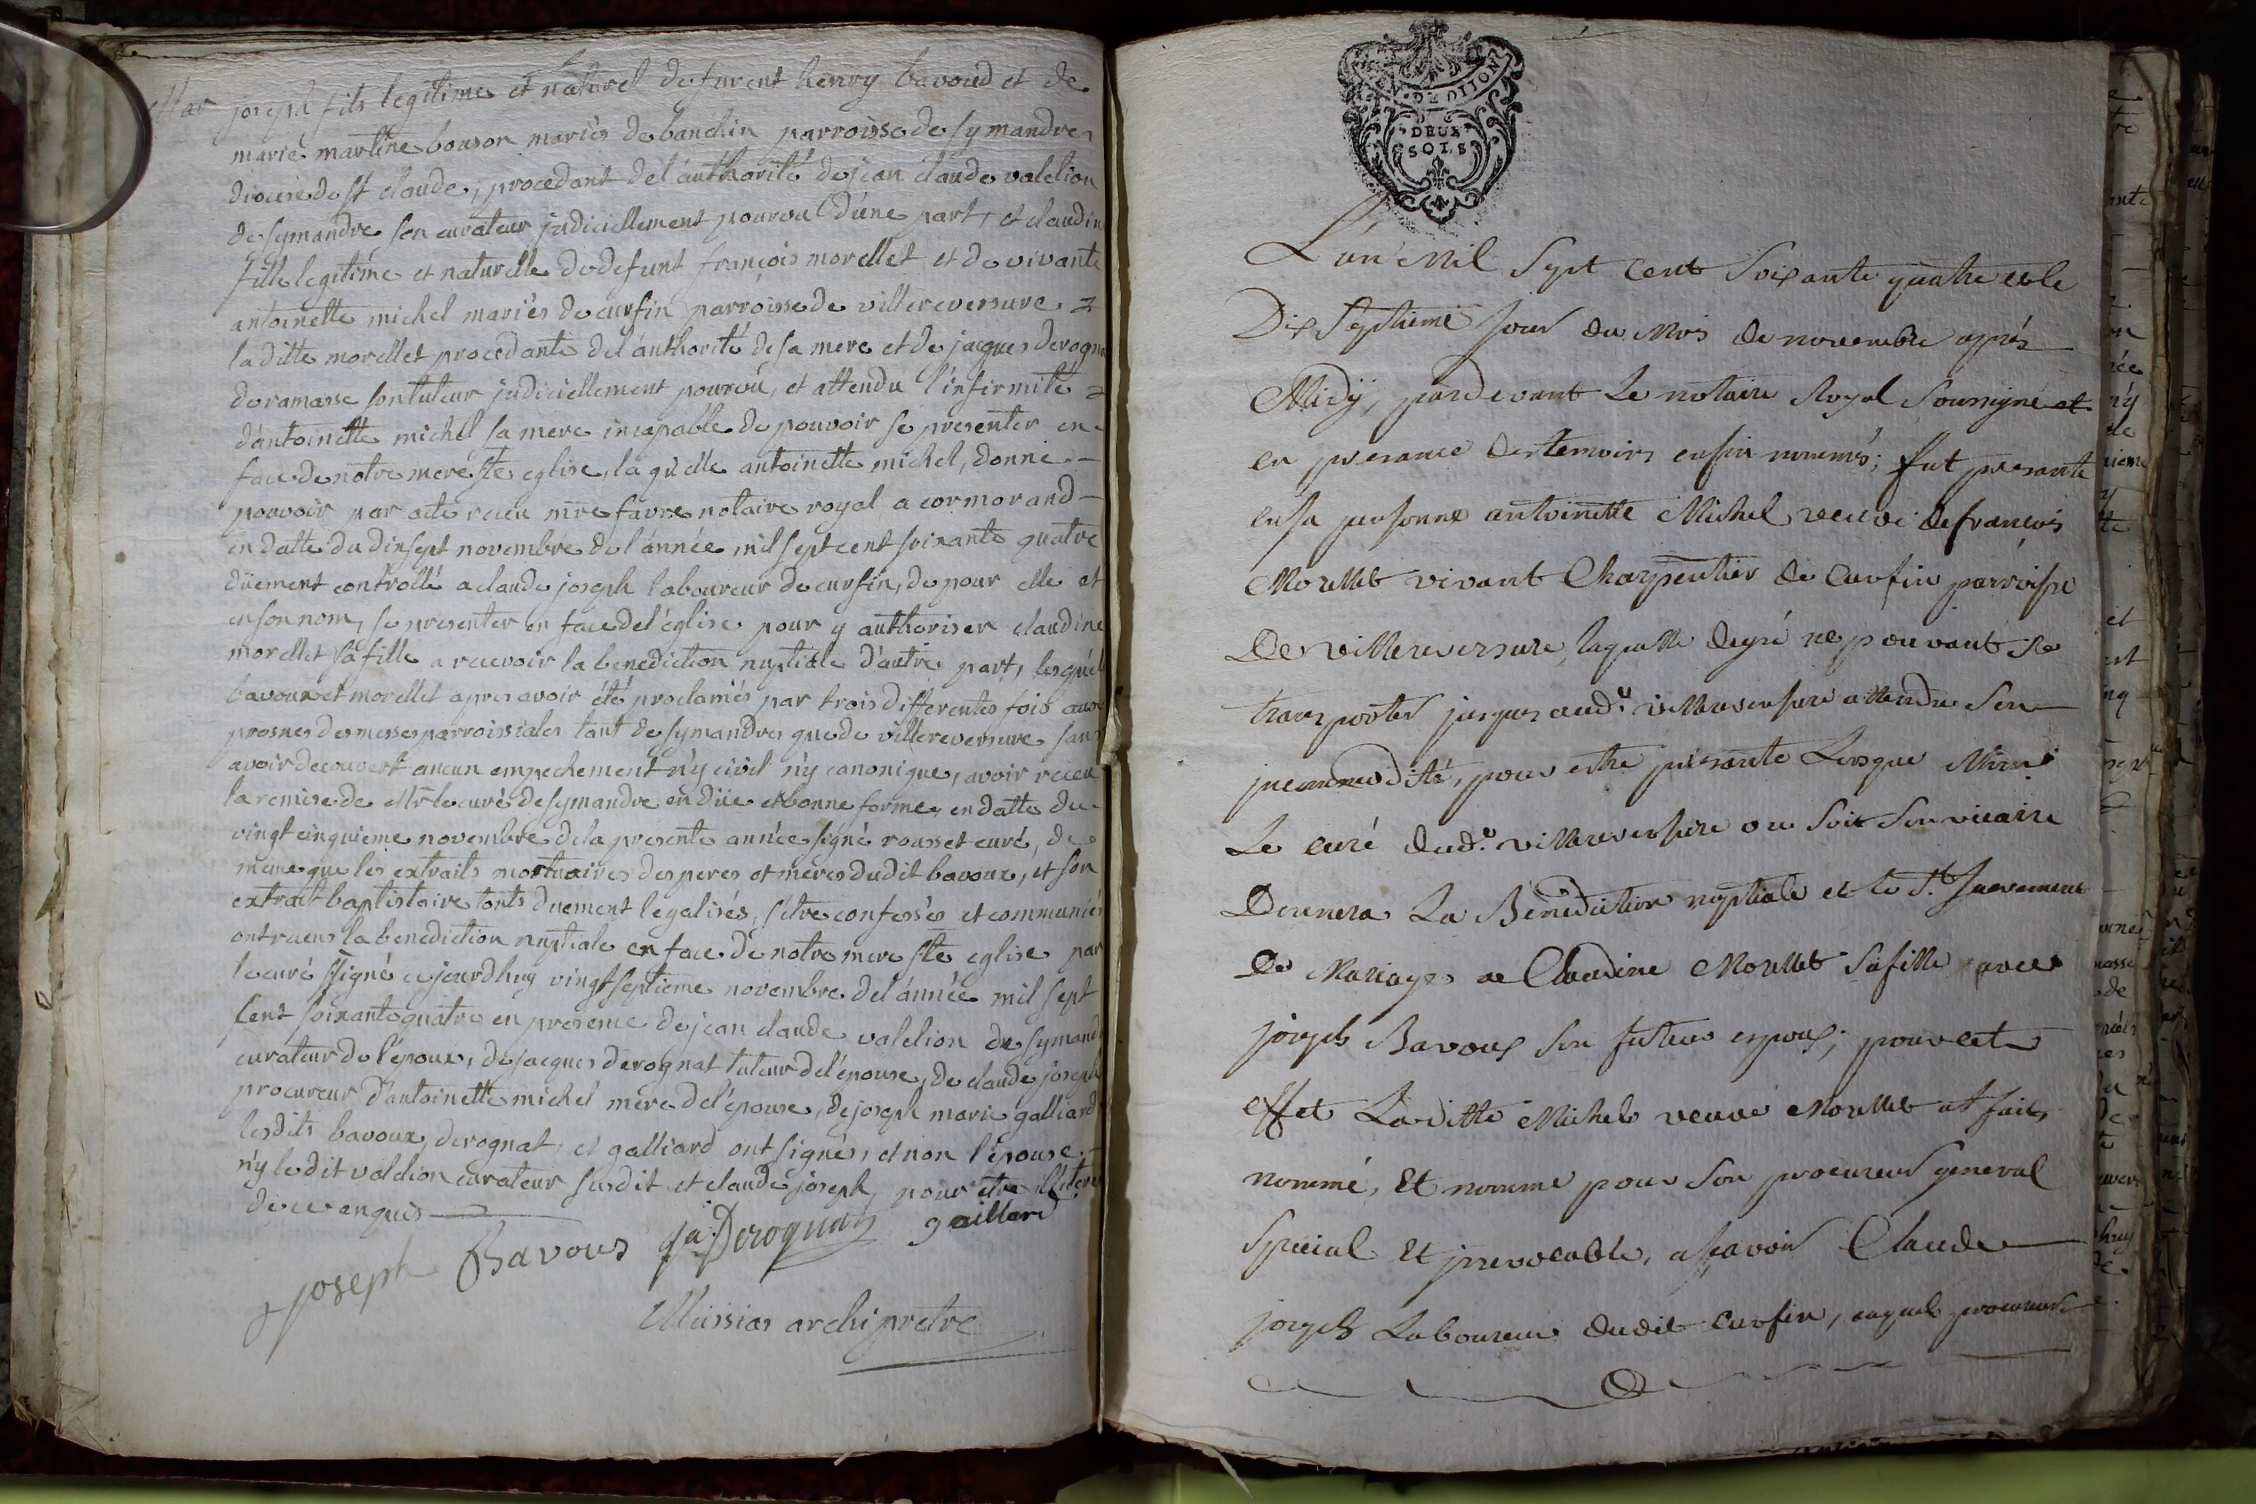 Mar joseph fils legitime et naturel de furent henry bavoud et de
marie martine bouson mariés de banchin parroisse de symandres
diocese de st claude, procedant de l'authorité de jean claude valelion
de symandre son curateur judiciellement pourvu d'une part, et claudine
fille legitime et naturelle de defunt françois morellet et de vivante
antoinette michel mariés de curfin parroisse de villereversure
la ditte morellet procedante de l'authorité de sa mere et de jacques derogna
de ramasse son tuteur judiciellement pourvu, et attendu l'infirmité
d'antoinette michel sa mere incapable de pouvoir se presenter en
face de notre mere ste eglise, la qu'elle antoinette michel, donne
pouvoir par acte receu mre favre notaire royal a cormorand
en datte du dixsept novembre de l'année mil sept cent soixante quatre
düement controllé a claude joseph laboureur de curfin, de pour elle et
en son nom, se presenter en face de l'église pour y authoriser claudine
morellet sa fille a recevoir la benediction nuptiale d'autre part, lesquels
bavoux et morellet apres avoir été proclamés par trois differentes fois aux
prosnes des messes parroissiales tant de symandres que de villereversure sans
avoir decouvert aucun empechement n'y civil n'y canonique, avoir receu
la remise de Mr le curé de symandre en düe et bonne forme, en datte du
vingt cinquieme novembre de la presente année signé rousset curé, de
meme que les extraits mortuaires des peres et meres dudit bavoux, et son
extrait baptistaire touts duement legalisés, s'etre confessés et communiés
ont receus la benediction nuptiale en face de notre mere ste eglise par
le curé ssigné cejourdhuy vingt septieme novembre de l'année mil sept
cent soixante quatre en presence de jean claude valelion de symand
curateur de l'époux, de jacques derognat tuteur de l'épouse, de claude joseph
procureur d'antoinette michel mere de l'épouse, de joseph marie galliard
lesdits bavoux, derognat, et galliard ont signés, et non l'épouse
n'y ledit valelion curateur susdit et claude joseph, pour etre illiteré
de ce enquis
joseph Bavous ja: Derognat gaillard
Muissias archiprêtre
DE DIJON
DEUX
SOLS
L'an Mil Sept Cent Soixante quatre et le
Dix Septieme Jour du Mois de novembre après
Midÿ, pardevant Le notaire Royal Soussigné et
en presance des temoins enfin nommés; fut presante
en sa personne antoinette Michel veuve de françois
Morellet vivant Charpentier de Curfin parroisse
De villereversure, laquelle de gré ne pouvant se
transporter jusques aud.t villereversure attendu son
jncommodité, pour estre présante Lorsque Mr
Le curé dud.t villereversure ou soit son vicaire
Donnera La Bénédiction nuptiale et le St. Sacrement
De Mariage a Claudine Morellet Sa fille avec
joseph Bavoux son futeur espoux; pour cet
effet Laditte Michel veuve Morellet at fait,
nommé, Et nomme pour Son procureur general
Special Et jrrevocable, asçavoir Claude
joseph Laboureur dudit Curfin, auquel procureur